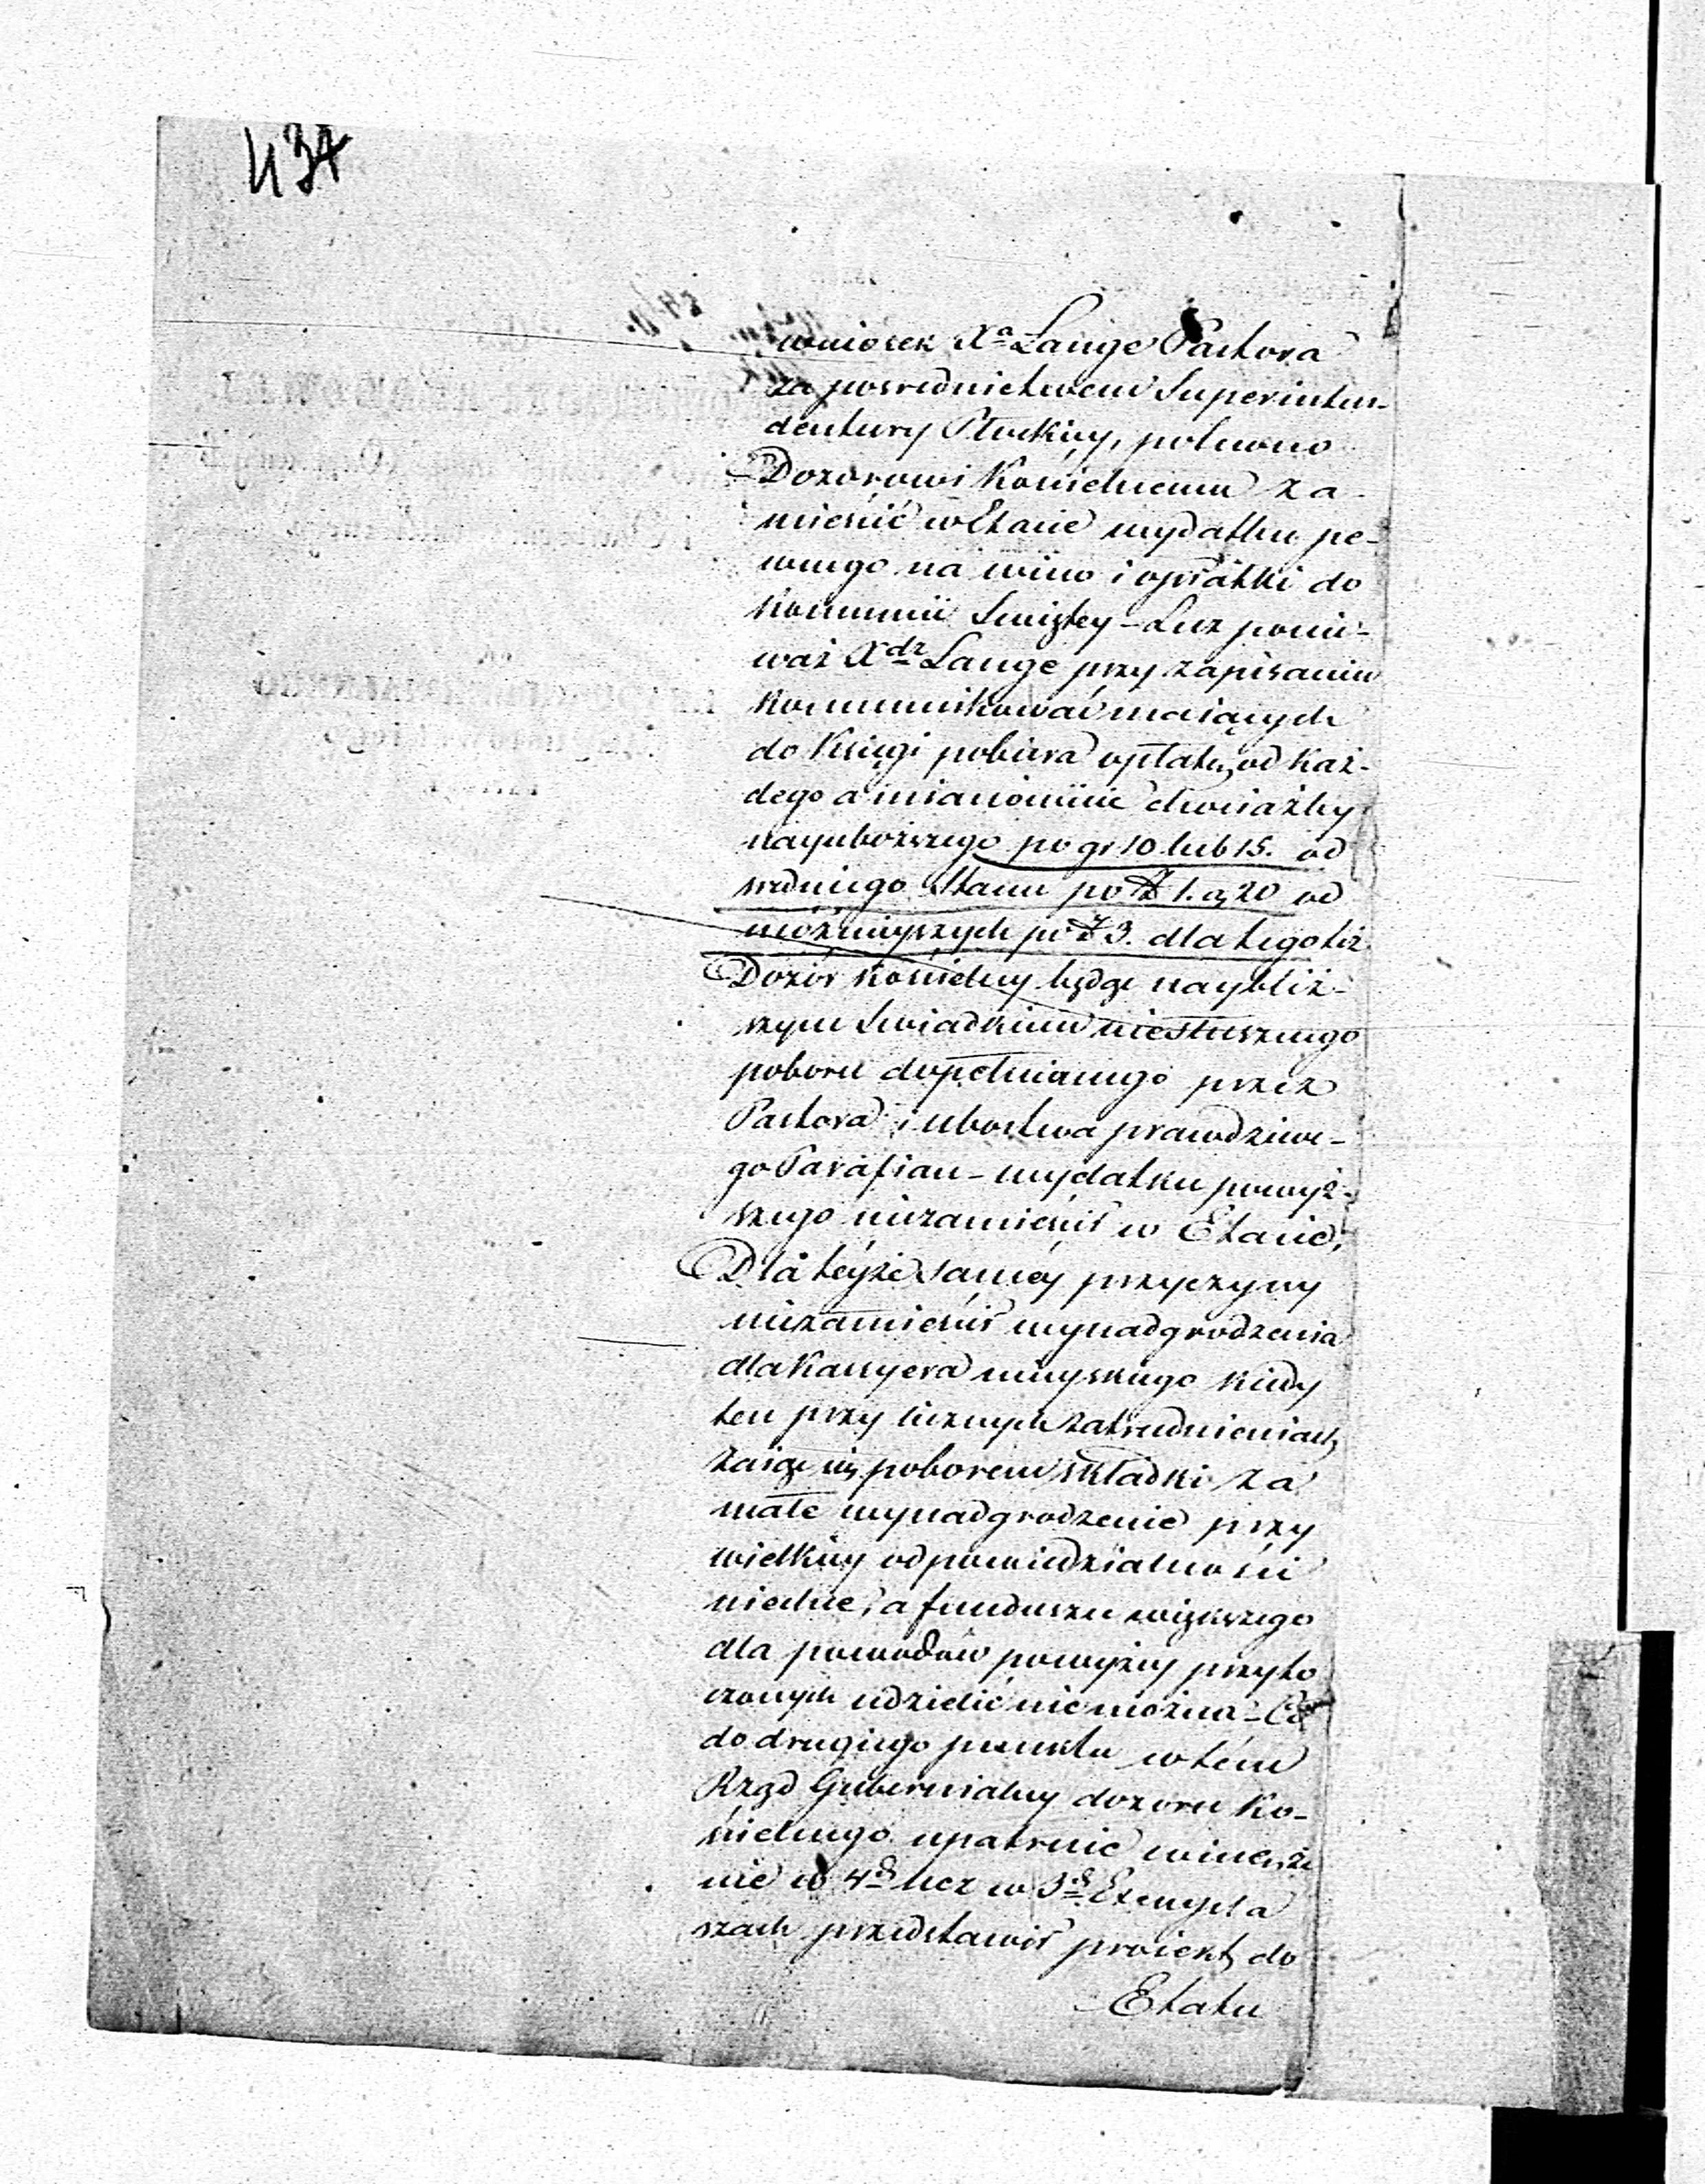 437
wniosek Xa Lange Pastora
za posrednictwem Superinten-
dentury Płockiey, polecono
Dozorowi Kościelnemu za-
mieścić w Etacie wydatku pe-
wnego na wino i opłatki do
Kommunii Swiętey - Lecz ponie-
waż Xdz Lange przy zapisaniu
kommunikować maiących
do Księgi pobiera opłatę od każ-
dego a mianowicie chociażby
nayuboższego po gr 10 lub 15. od
sredniego stanu po Zł 1. gr 20 od
możnieyszych po Zł 3. dla tego też
Dozór Kościelny będąc naybliż-
szym Swiadkiem niesłusznego
poboru dopełnianego przez
Pastora i ubostwa prawdziwe-
go Parafian - wydatku powyż-
szego niezamieścił w Etacie,
Dla teyże saméy przyczyny
niezamieścił wynadgrodzenia
dla Kassyera mieyskiego kiedy
ten przy licznych zatrudnieniach
zaiąć się poborem składki za
małe wynadgrodzenie przy
wielkiey odpowiedzialności
niechce, a funduszu większego
dla powodów powyżey przyto
czonych udzielić nie można - Co
do drugiego punktu w tém
Rząd Gubernialny dozoru Ko-
ścielnego upatruie winę, że
nie w 4ch lecz w 3ch Exempla
rzach przedstawił proiekt do
Etatu